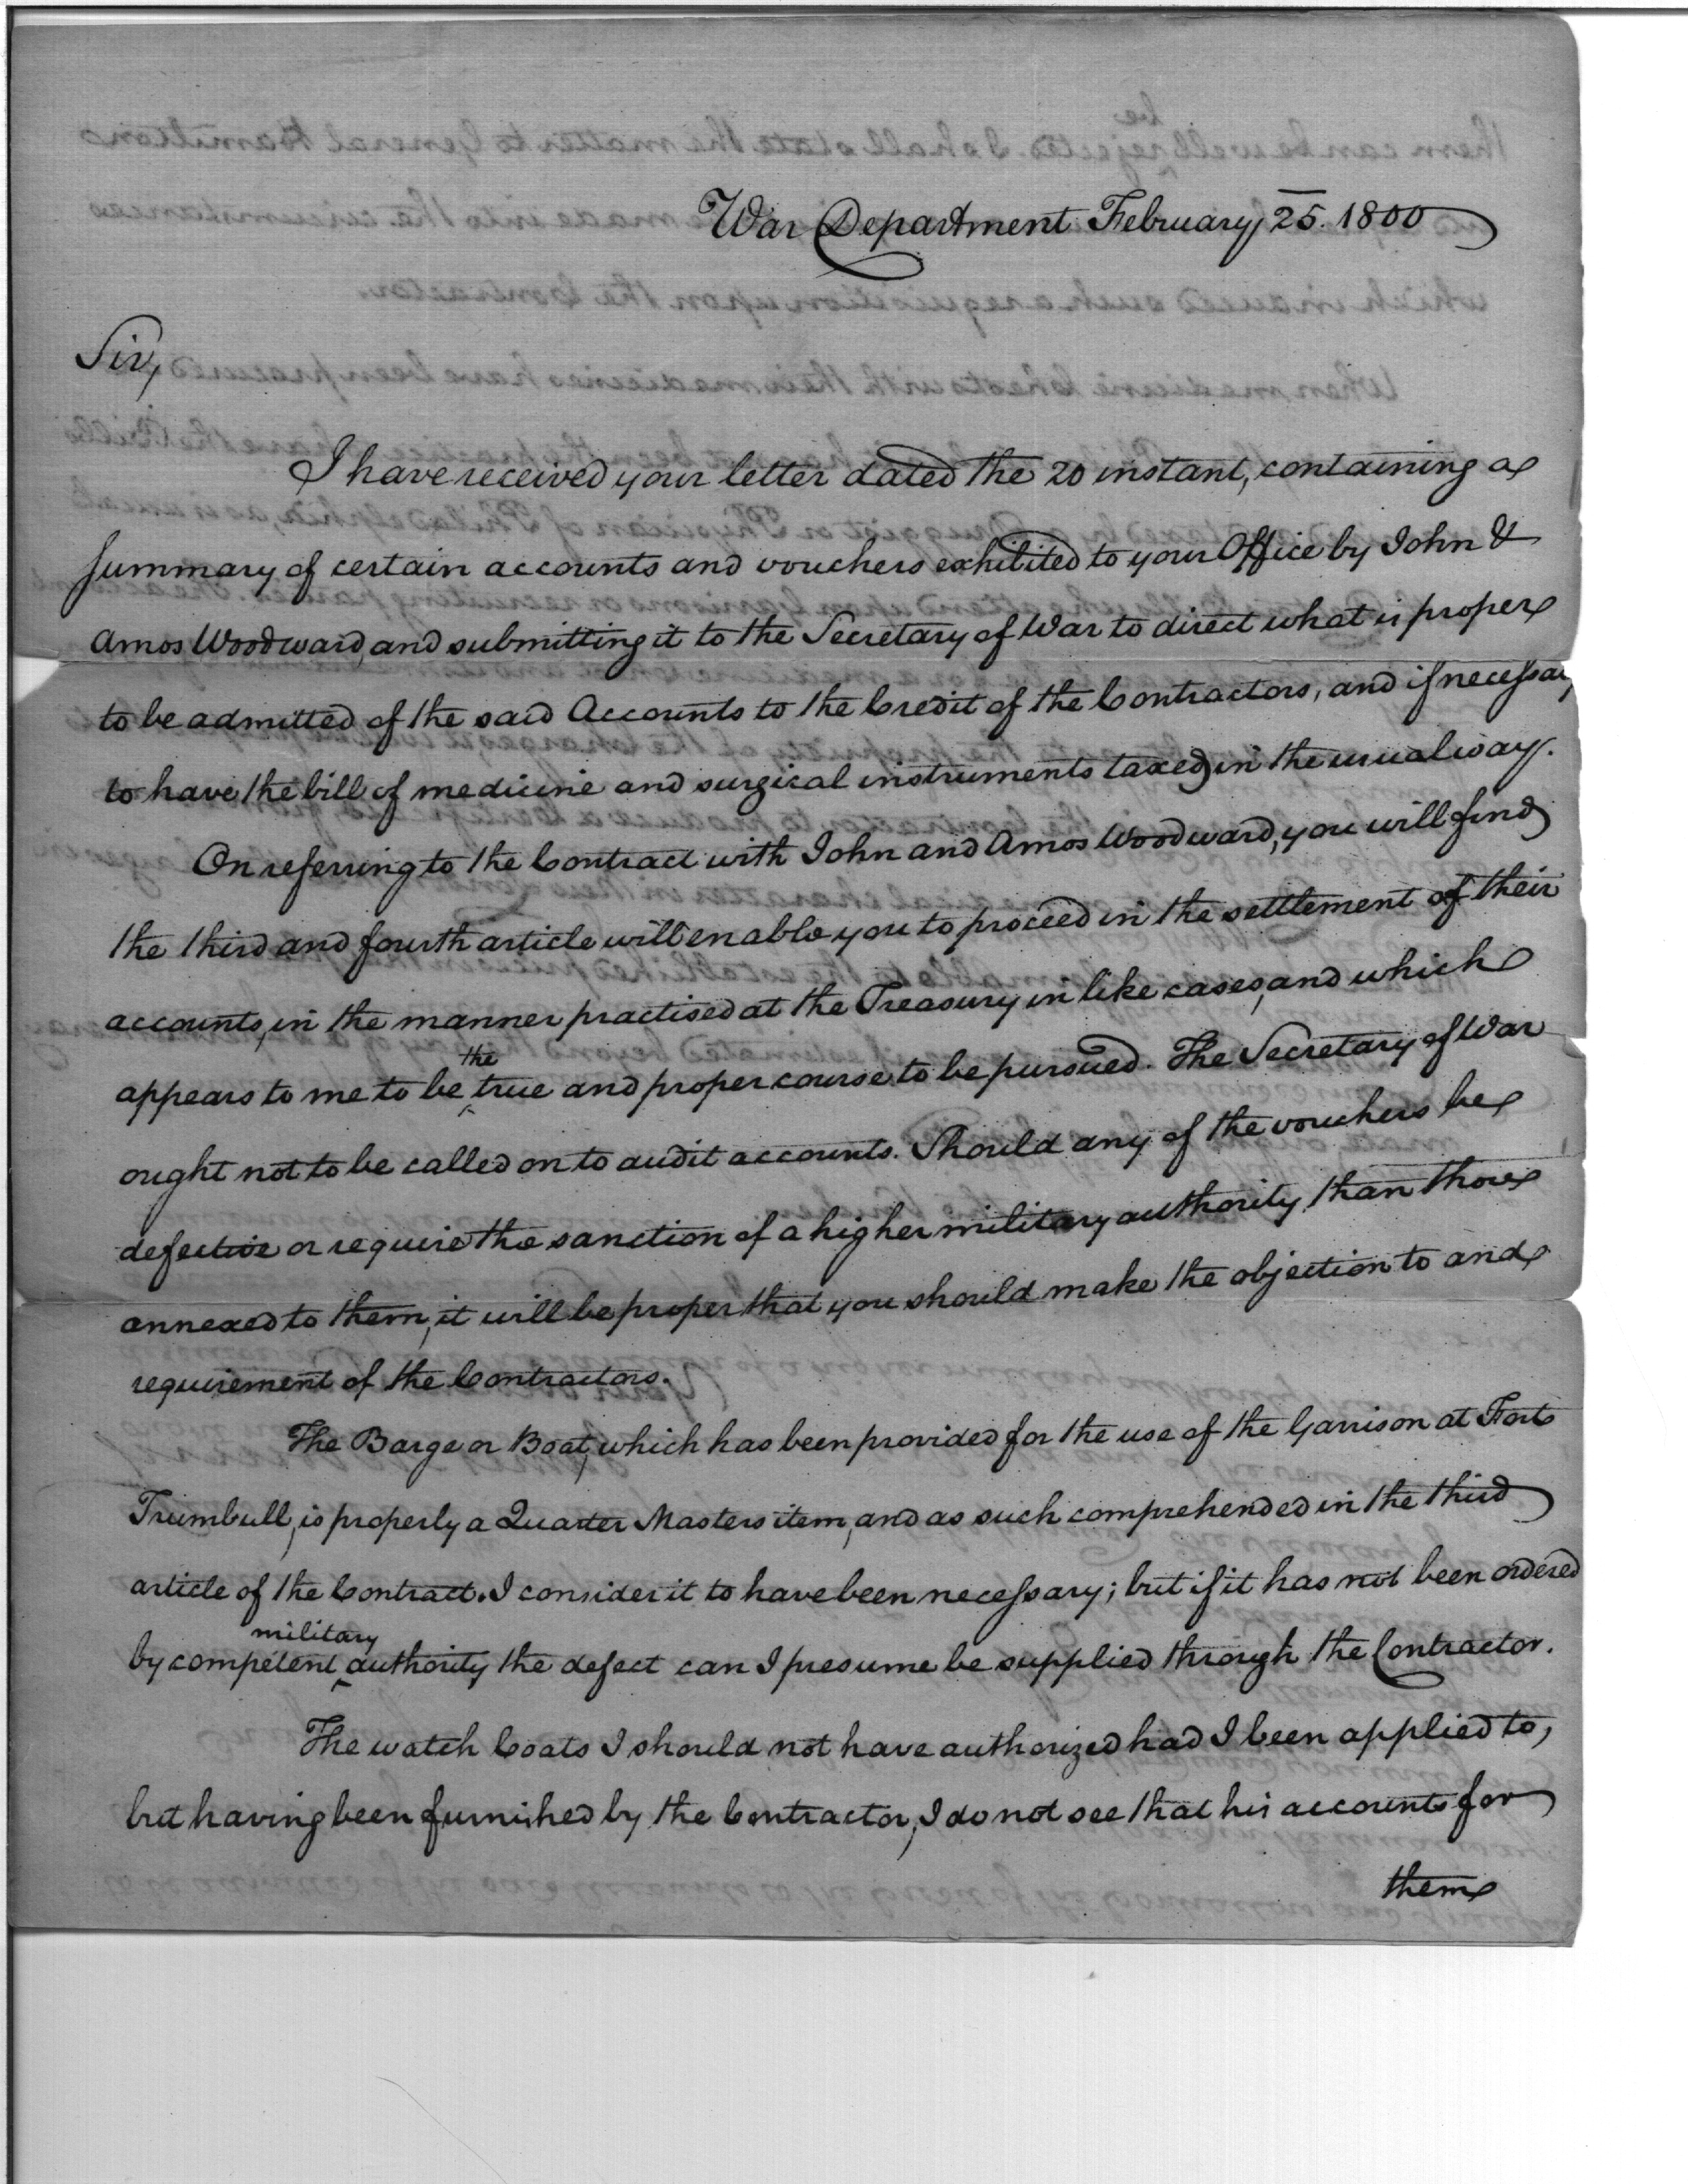 War Department February 25. 1800
Sir,
I have received your letter dated the 20 instant, containing a
summary of certain accounts and vouchers exhibited to your Office by John &
Amos Woodward, and submitting it to the Secretary of War to direct what is proper
to be admitted of the said Accounts to the Credit of the Contractors, and if necessary
to have the bill of medicine and surgical instruments taxed in the usual way.
On referring to the Contract with John and Amos Woodward, you will find
the third and fourth article will enable you to proceed in the settlement of their
accounts, in the manner practised at the Treasury in like cases, and which
appears to me to be the true and proper course to be pursued. The Secretary of War
ought not to be called on to audit accounts. Should any of the vouchers be
defective or require the sanction of a higher military authority than those
annexed to them, it will be proper that you should make the objection to and
requirement of the Contractors.
The Barge or Boat, which has been provided for the use of the Garrison at Fort
Trumbull, is properly a Quarter Masters item, and as such comprehended in the third
article of the Contract. I consider it to have been necessary; but if it has not been ordered
by competent military authority the defect can I presume be supplied through the Contractor.
The watch Coats I should not have authorized had I been applied to,
but having been furnished by the Contractor, I do not see that his accounts for
them